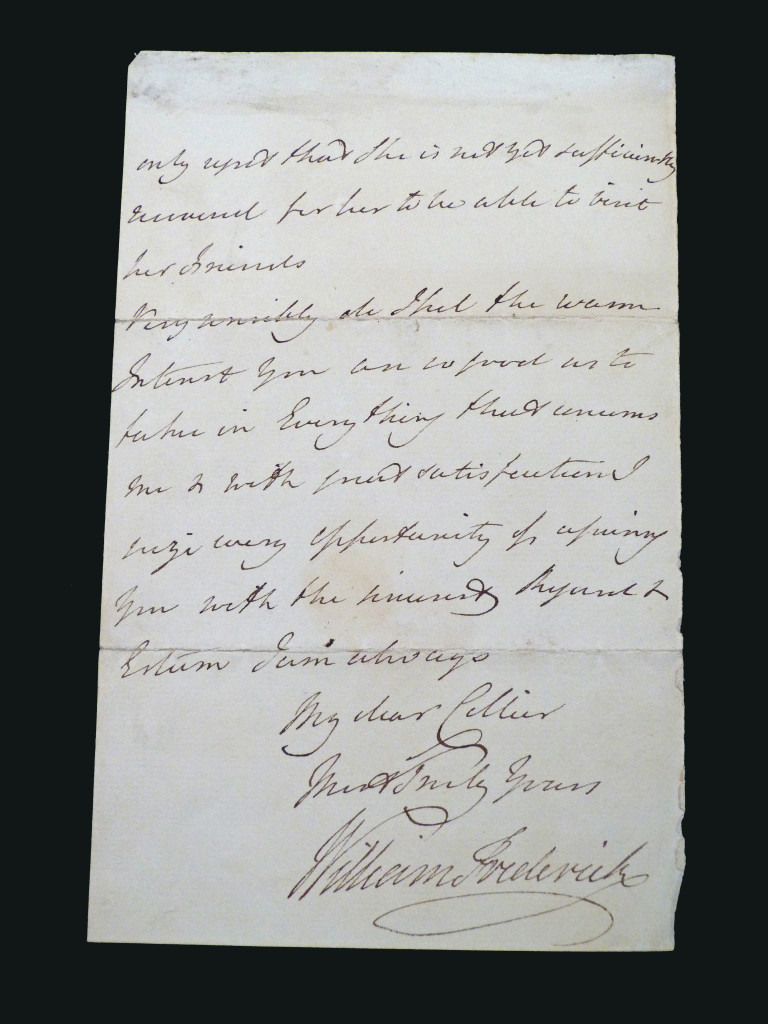 only regret that She is not yet sufficiently
recovered for her to be able to visit
her Friends
Very sensibly do I feel the warm
Interest You are so good as to
take in Every thing that concerns
me & with great satisfaction I
seize every opportunity of assuring
You with the sincerest Regard &
Esteem I am always
My dear Collier
Most Truly Yours
William Frederick